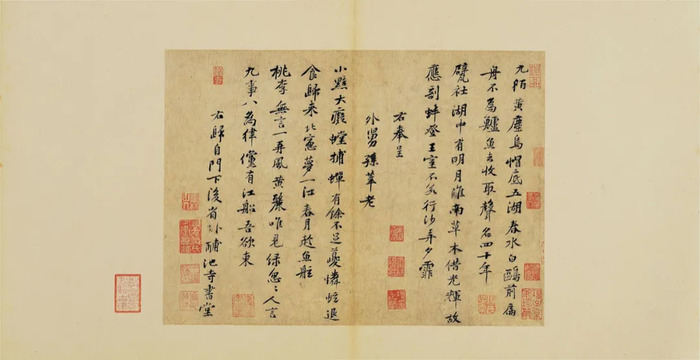 九陌黃塵烏帽底五湖春水白鷗前扁
舟不為鱸魚去收取聲名四十年
甓社湖中有明月淮南草木借光輝故
應剖蚌登王室不若行沙弄夕霏
右奉呈
外舅孫莘老
小黠大癡螳捕蟬有餘不足夔憐蚿退
食歸來北窻夢一江春月趁魚船
桃李無言一再風黃鸝唯見綠怱怱人言
九事八為律儻有江船吾欲東
右歸自門下後省卧酺池寺書堂